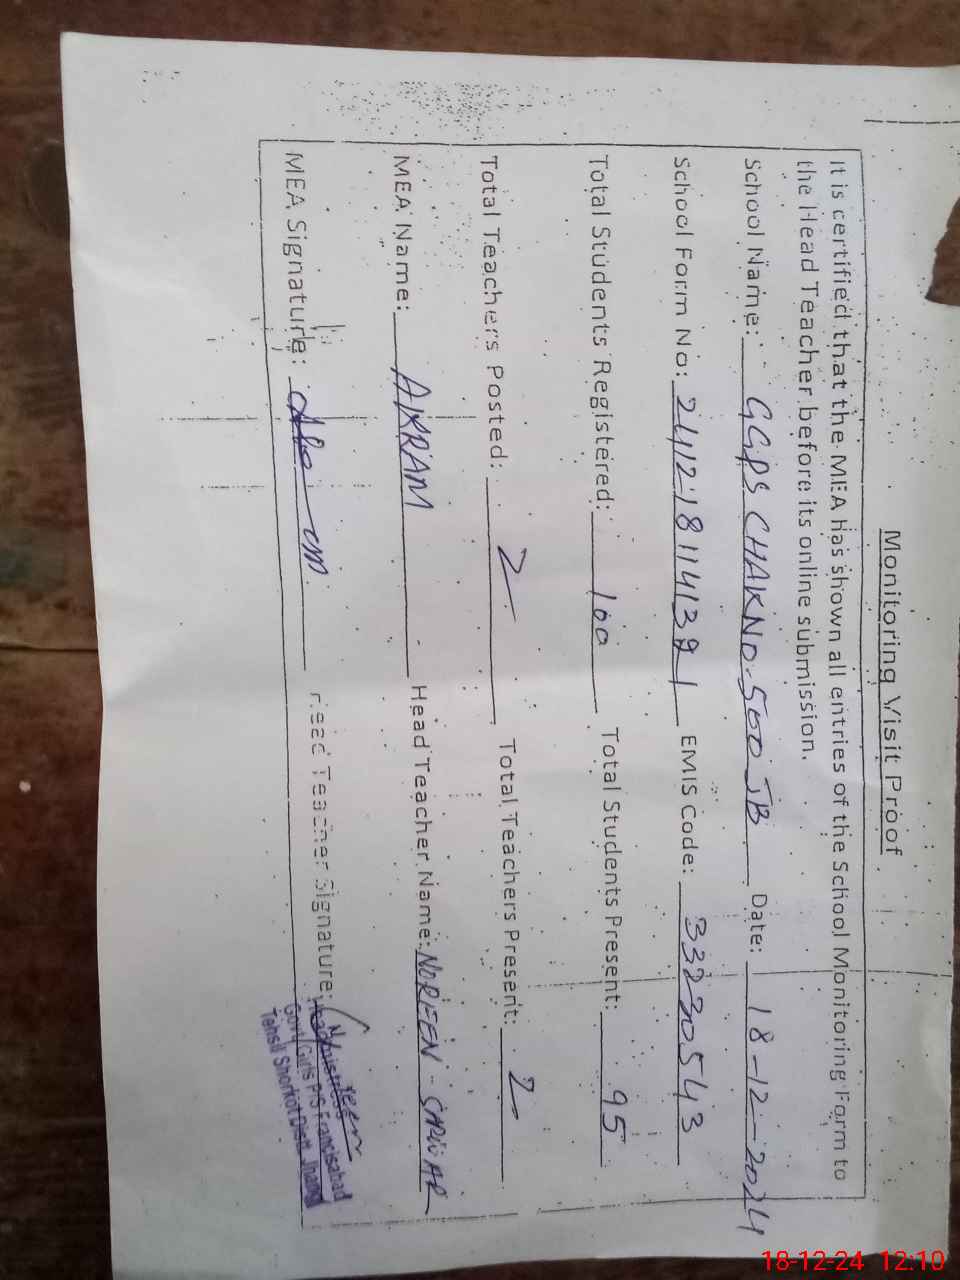 Monitoring Visit Proof
It is certified that the MEA has shown all entries of the School Monitoring Form to
the Head Teacher before its online submission.
School Name: GGPS CHAK NO. 500 JB Date: 18-12-2024
School Form No: EMIS Code: 33230543
Total Students Registered: 100 Total Students Present: 95
Total Teachers Posted: 2 Total Teachers Present: 2
MEA Name: AKRAM Head Teacher Name: NOREEN - SARWAR
MEA Signature: Head Teacher Signature:
Headmistress
Govt. Girls P/S Francisabad
Tehsil Shorkot Distt. Jhang
18-12-24 12:10